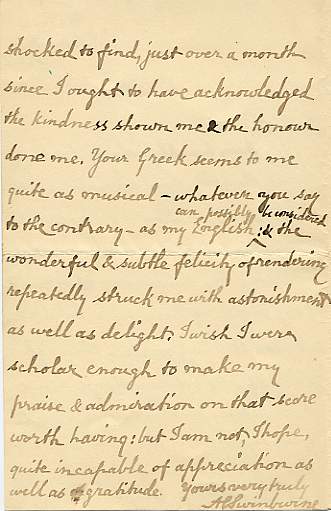 shocked to find, just over a month
since I ought to have acknowledged
the kindness shown me & the honour
done me. Your Greek seems to me
quite as musical – whatever you say
can possibly be considered
to the contrary – as my English : & the
wonderful & subtle felicity of rendering
repeatedly struck me with astonishment
as well as delight. I wish I were
scholar enough to make my
praise & admiration on that score
worth having: but I am not, I hope,
quite incapable of appreciation as
well as gratitude. Yours very truly
A C Swinburne